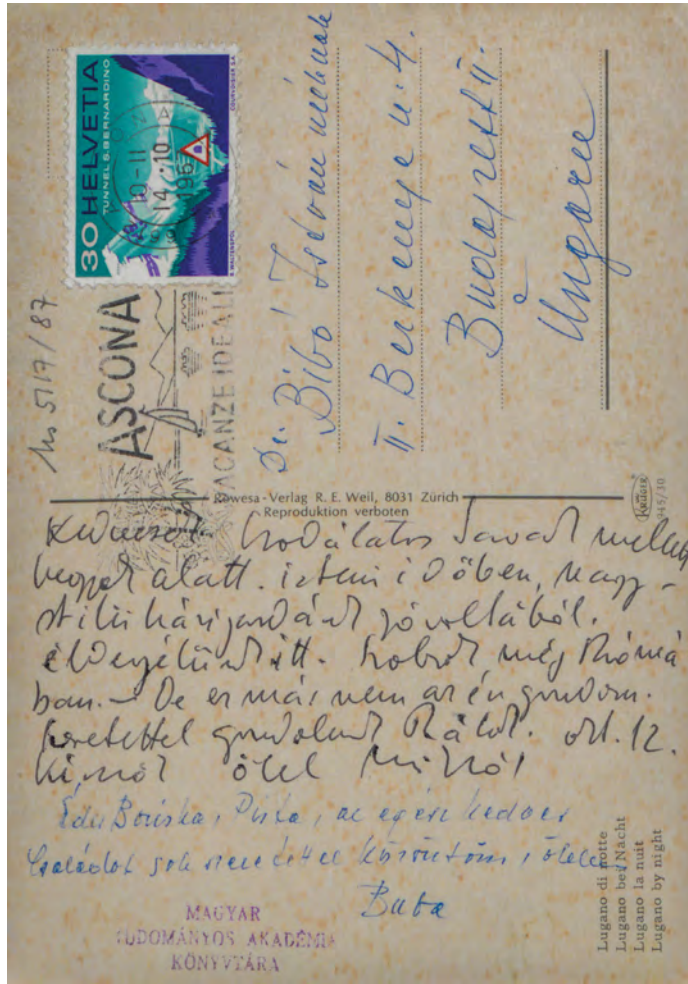 Ms 5117/87
30 HELVETIA
TUNNEL S. BERNARDINO
COURVOISIER S.A.
10-11
14.10
ASCONA
VACANZE IDEALI
Dr. Bibó István uléknak
II. Berkenye u. 4.
Budapest II.
Ungarn
Rowesa-Verlag R. E. Weil, 8031 Zürich
Reproduktion verboten
KRÜGER
945/30
Kedvesek. Csodálatos tavak mellett
hegyek alatt. isteni időben, nagy-
stílű házigazdánk jóvoltából.
éldegélünk itt. Szobrok még Rómá
ban. - De ez már nem az én gondom.
Szeretettel gondolunk Rátok. okt. 12.
ölel Miklós
Édes Böriska, Pista, az egész kedves
Családot sok szeretettel köszöntöm, ölelem
Buba
MAGYAR
TUDOMÁNYOS AKADÉMIA
KÖNYVTÁRA
Lugano di notte
Lugano bei Nacht
Lugano la nuit
Lugano by night